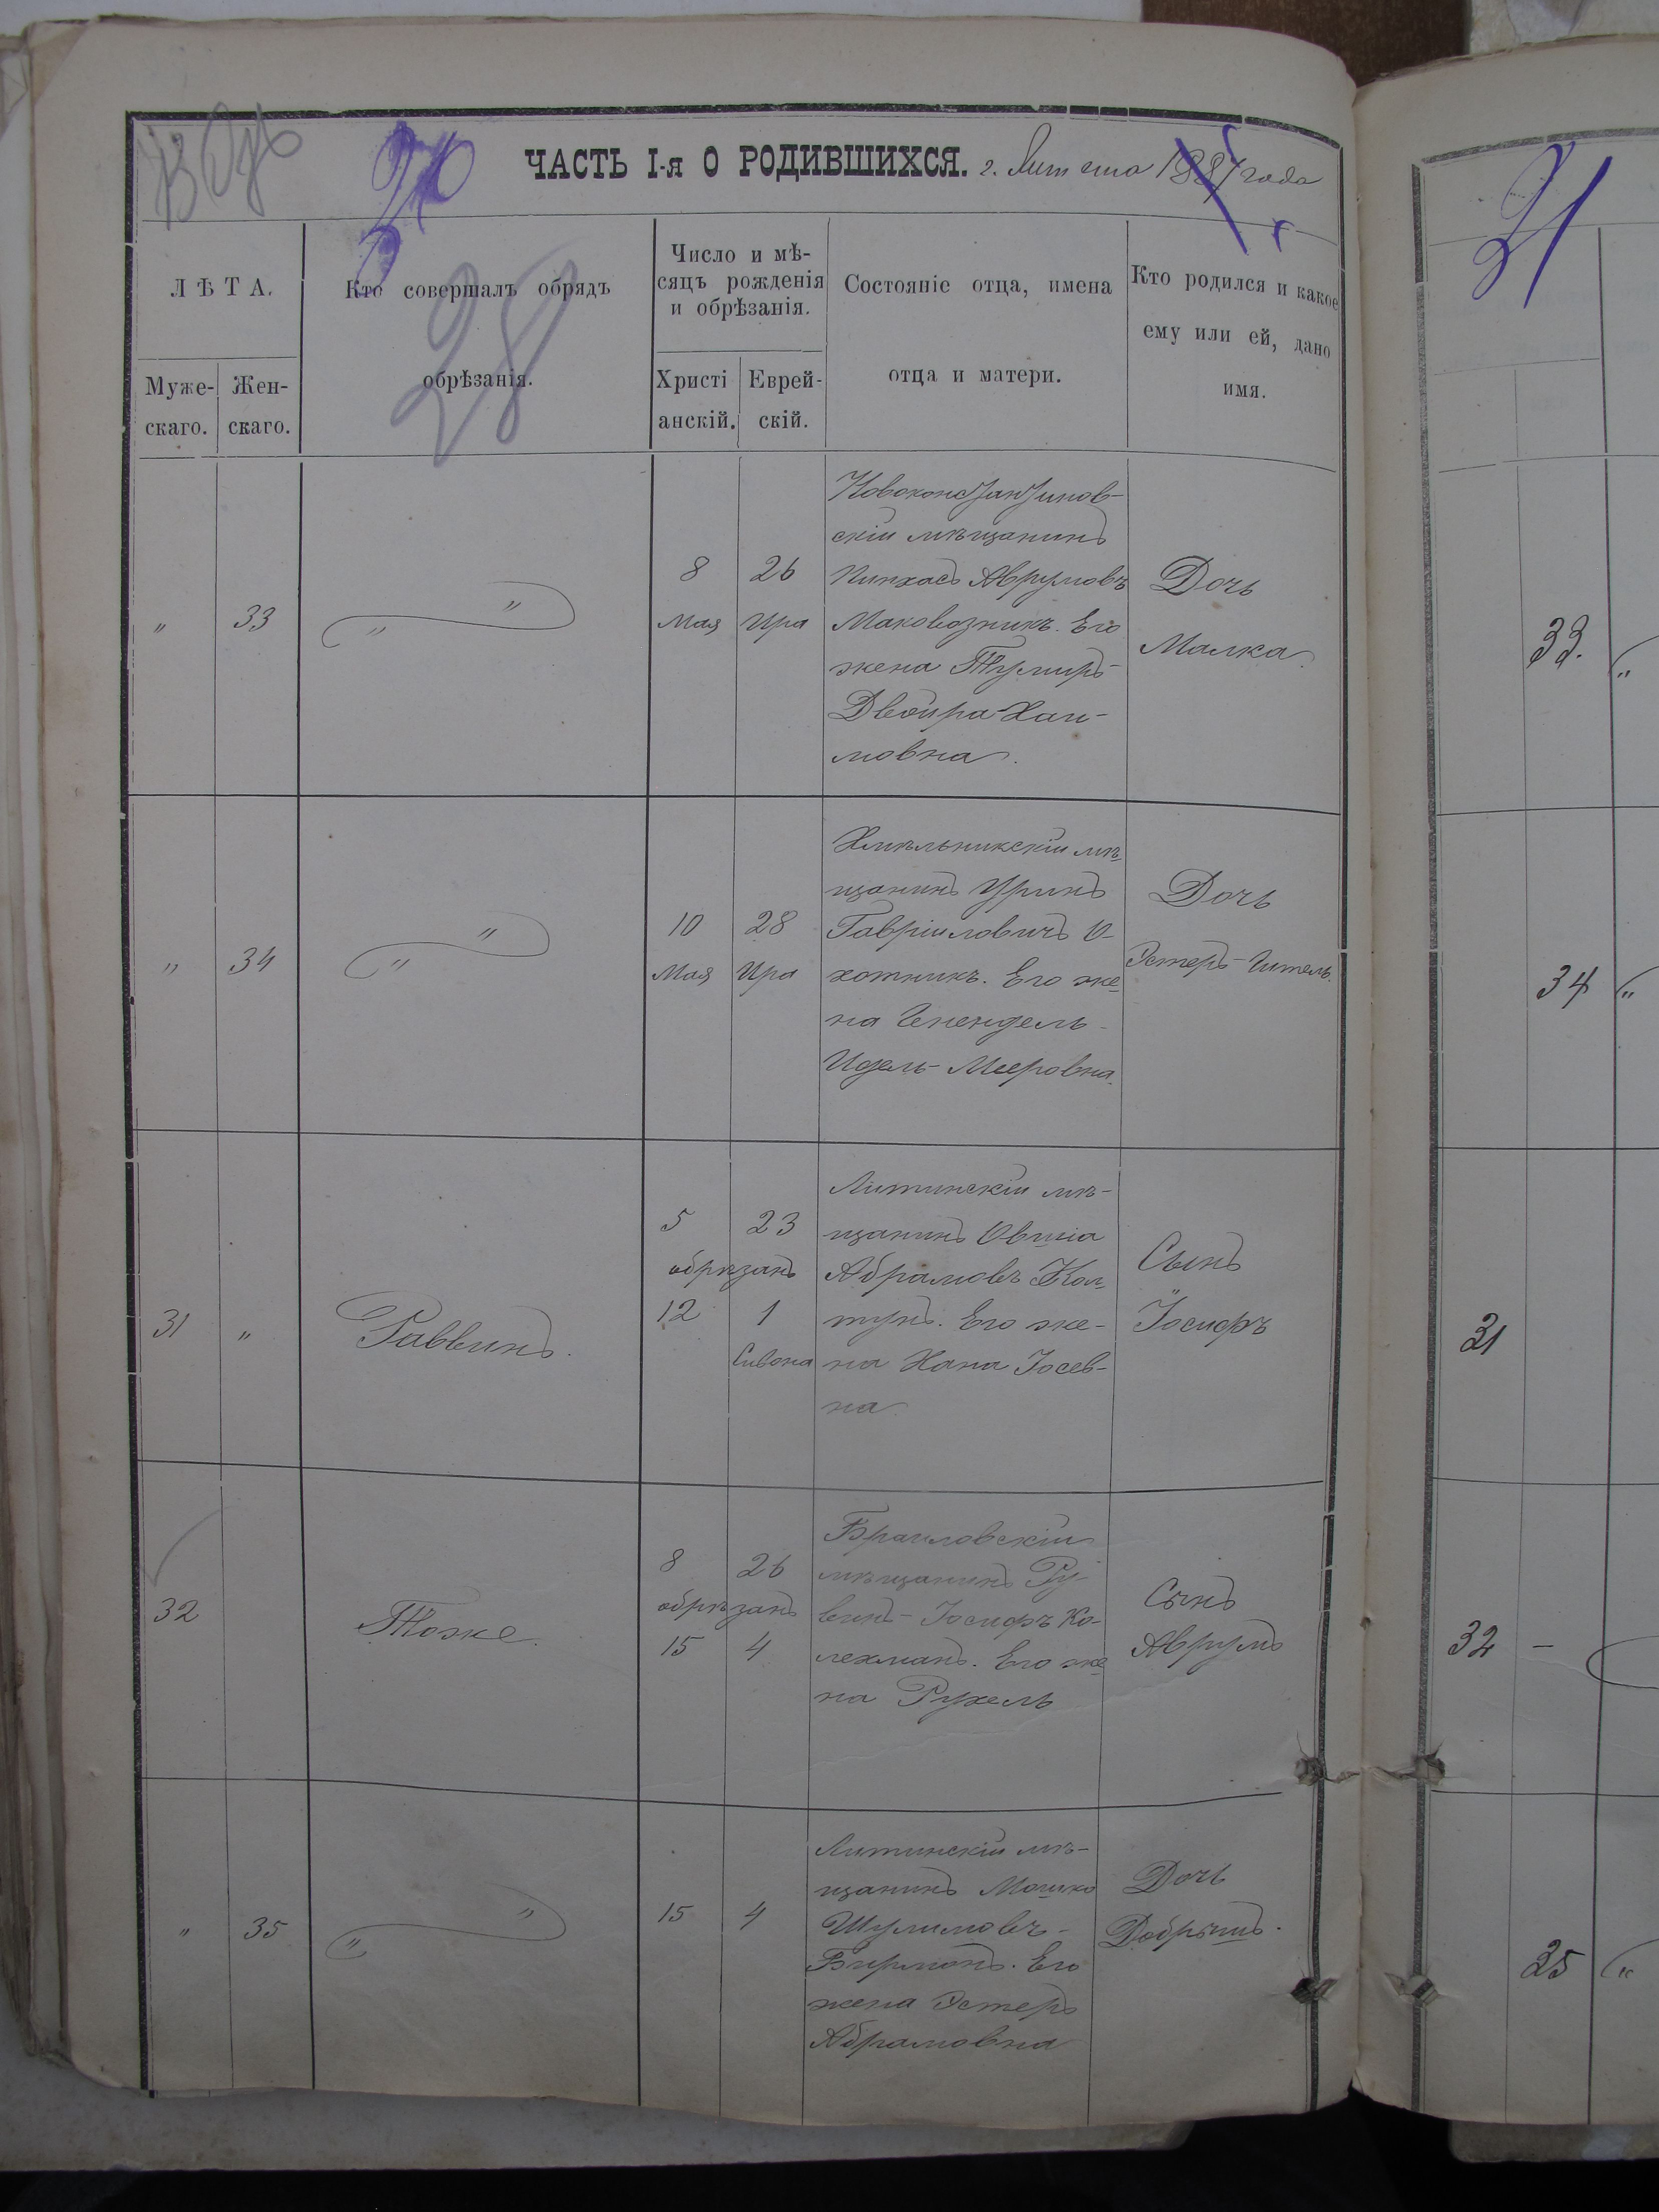 ЧАСТЬ I-я О РОДИВШИХСЯ. г. Литина 1887 года
20
28
ЛѢТА.
Муже-
скаго.
Жен-
скаго.
Кто совершалъ обрядъ
обрѣзанія.
Число и мѣ-
сяцъ рожденія
и обрѣзанія.
Христі
анскій.
Еврей-
скій.
Состояніе отца, имена
отца и матери.
Кто родился и какое
ему или ей, дано
имя.
„ 33
„ „
8
Мая
26
Ира
Новоконстантинов-
скій мѣщанинъ
Пинхасъ Аврумовъ
Маковозникъ. Его
жена
Двойра Хаи-
мовна.
Дочь
Малка.
„ 34
„ „
10
Мая
28
Ира
Хмѣльникскій мѣ
щанинъ
Гавріиловичъ О-
хотникъ. Его же
на Ененდель
Идель-Мееровна.
Дочь
Эстеръ-Гитель.
31 „
Раввинъ.
5 23
обрѣзанъ
12 1
Сивона
Литинскій мѣ-
щанинъ Овшіа
Абрамовъ Кол
тунъ. Его же-
на Хана Іосев-
на
Сынъ
Іосифъ
32
Тоже.
8 26
обрѣзанъ
15 4
Браиловскій
мѣщанинъ Ру-
винъ-Іосифъ Ко-
лехманъ. Его же
на Рухель
Сынъ
Аврумъ
„ 35
„ „
15 4
Литинскій мѣ-
щанинъ Мошко
Шулимовъ-
Бирманъ. Его
жена Эстеръ
Абрамовна
Дочь
Добрышъ.
21
33.
34
31
32 —
35